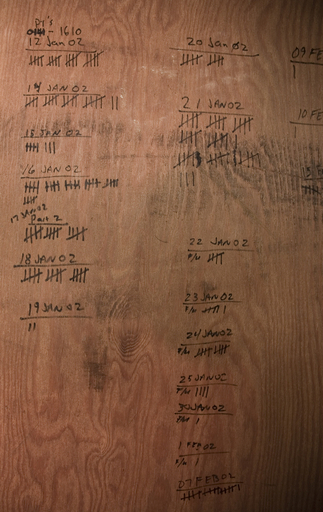 PT's
- 1610
12 Jan 02
14 JAN 02
15 JAN 02
16 JAN 02
17 JAN 02
Part 2
18 JAN 02
19 JAN 02
20 JAN 02
21 JAN02
22 JAN 02
P/M
23 JAN 02
P/M
24 JAN02
P/M
25 JAN 02
P/M
30 JAN 02
P/M
1 FEB 02
P/M
07 FEB 02
09 FE
10 FE